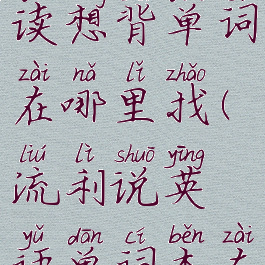 读想背单词
zài nǎ lǐ zhǎo
在哪里找(
liú lì shuō yīng
流利说英
yǔ dān cí běn zài
语单词本在